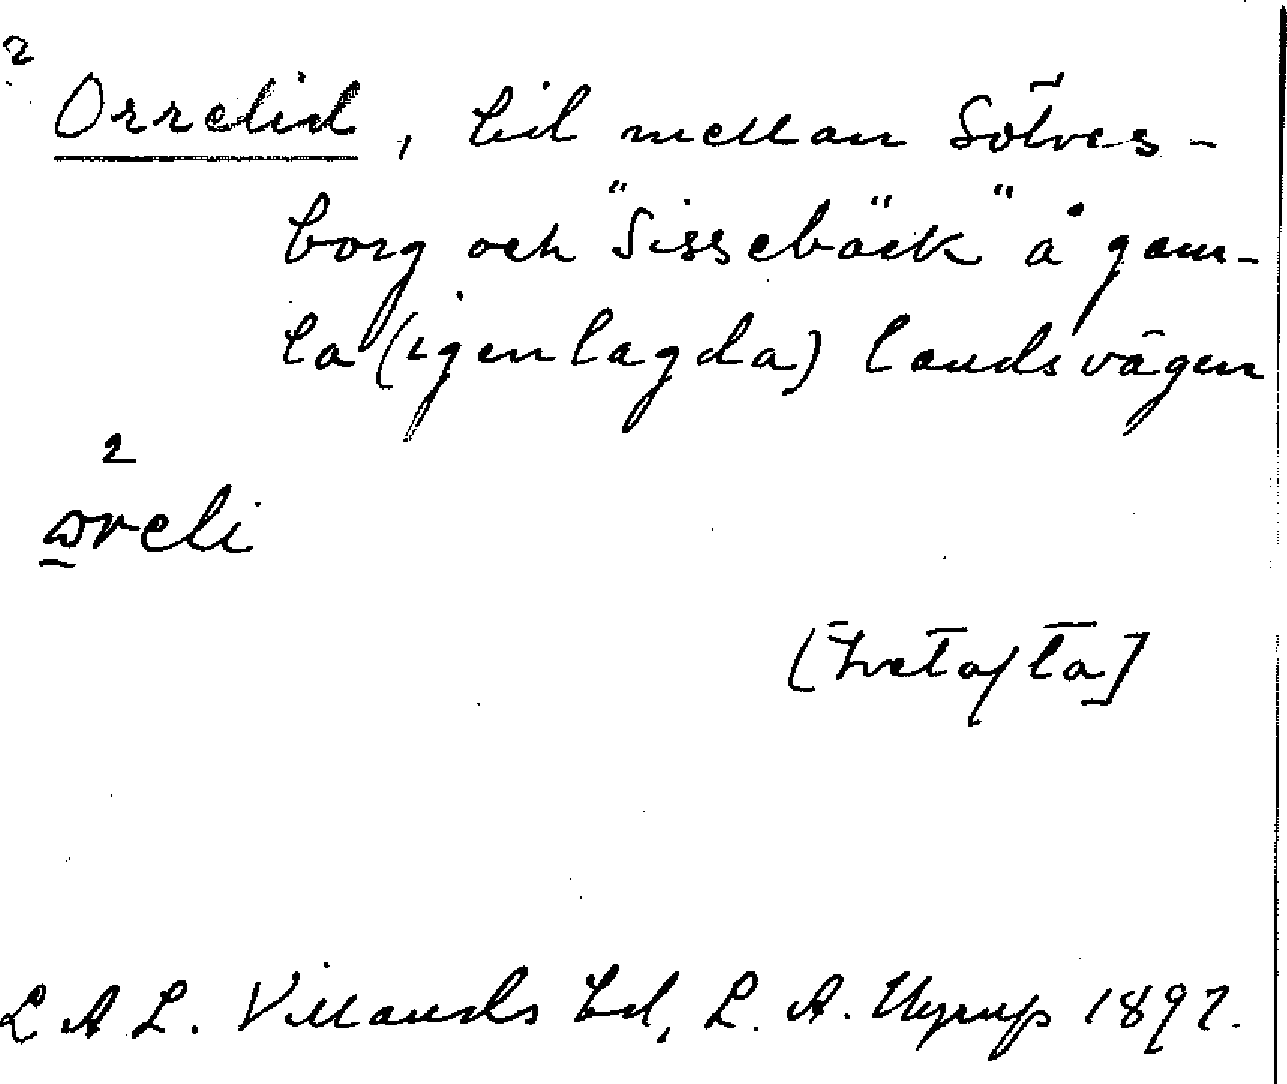 2
Orrelid, lid mellan Sölves-
borg och "Sissebäck" å gam-
la (igenlagda) landsvägen
2
oreli
[Ivetofta]
L A L. Villands hd, L. A. Ugrup 1897.